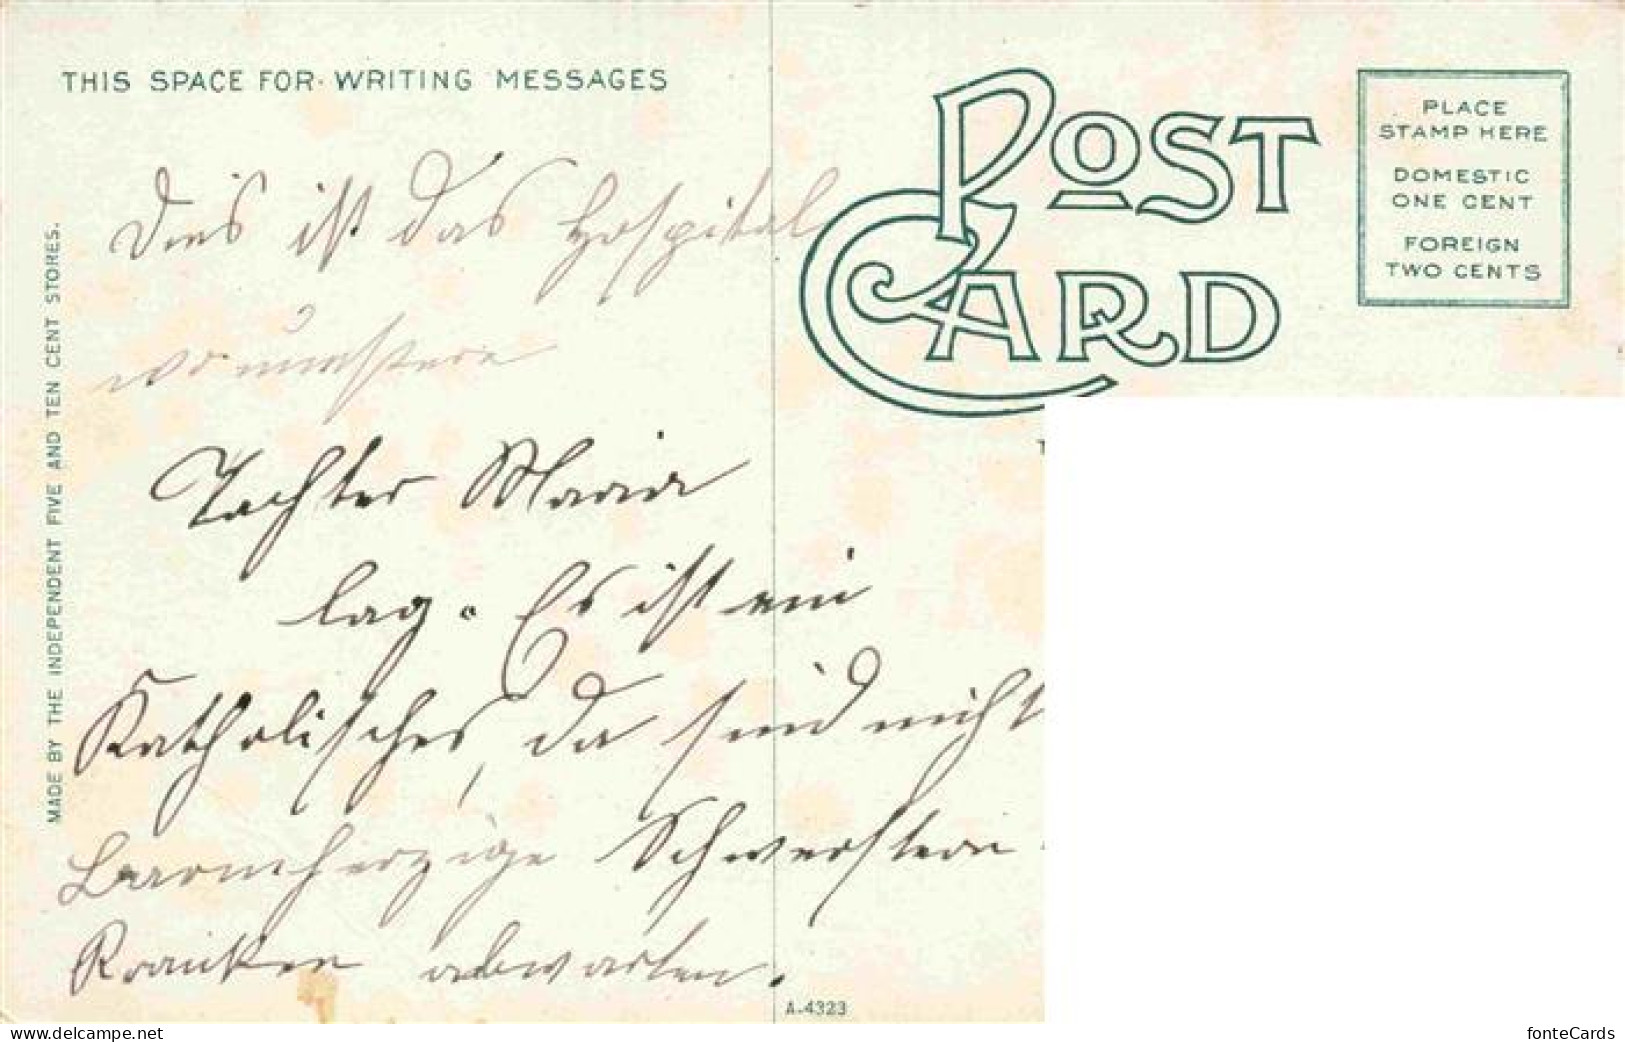 THIS SPACE FOR WRITING MESSAGES
POST CARD
PLACE
STAMP HERE
DOMESTIC
ONE CENT
FOREIGN
TWO CENTS
MADE BY THE INDEPENDENT FIVE AND TEN CENT STORES.
Dies ist das Hospital
wo unsere
Tochter Maria
lag. Es ist ein
Katholisches, da sind nicht
Barmherzige Schwestern
Kranken abwarten.
A-4323
www.delcampe.net
fonteCards